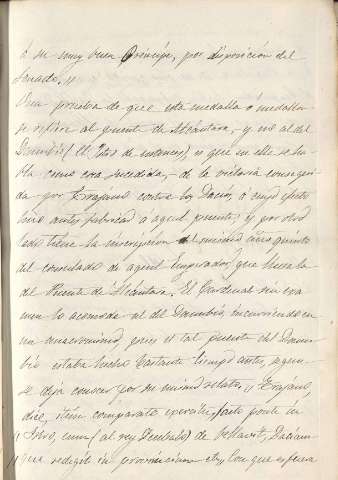 á su muy buen Principe, por disposición del
Senado."
Una prueba de que esta medalla ó medallas
se refiere al puente de Alcántara, y no al del
Danubio (el Istro de entonces), es que en ella se ha-
bla como cosa sucedida, de la victoria consegui-
da por Trajano contra los Dacios, á cuyo efecto
hizo antes fabricar aquel puente; y por otro
lado tiene la inscripcion el mismo año quinto
del consulado de aquel Emperador, que lleva la
del Puente de Alcántara. El Cardenal sin exa-
men lo acomoda al del Danubio, incurriendo en
un anacronismo, pues el tal puente del Danu-
bio estaba hecho bastante tiempo antes, segun
se deja conocer por su mismo relato. "Trajano,
dice, item comparato exercitu, facto ponte in
Istro, eum (al rey Decebalo) de
que redigit in provinciam etc, con que es fuera